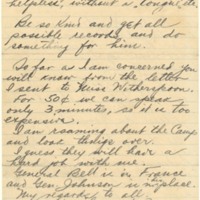 helpless, without a tongue, etc.
Be so kind and get all
possible records and do
something for him.
So far as I am concerned you
will know from the letter
I sent to Miss Witherspoon.
For 50¢ we can speak
only 3 minutes, so it is too
expensive.
I am roaming about the Camp
and look things over.
I guess they will have a
hard job with me.
General Bell is in France
and Gen. Johnson is in his place.
My regards to all.